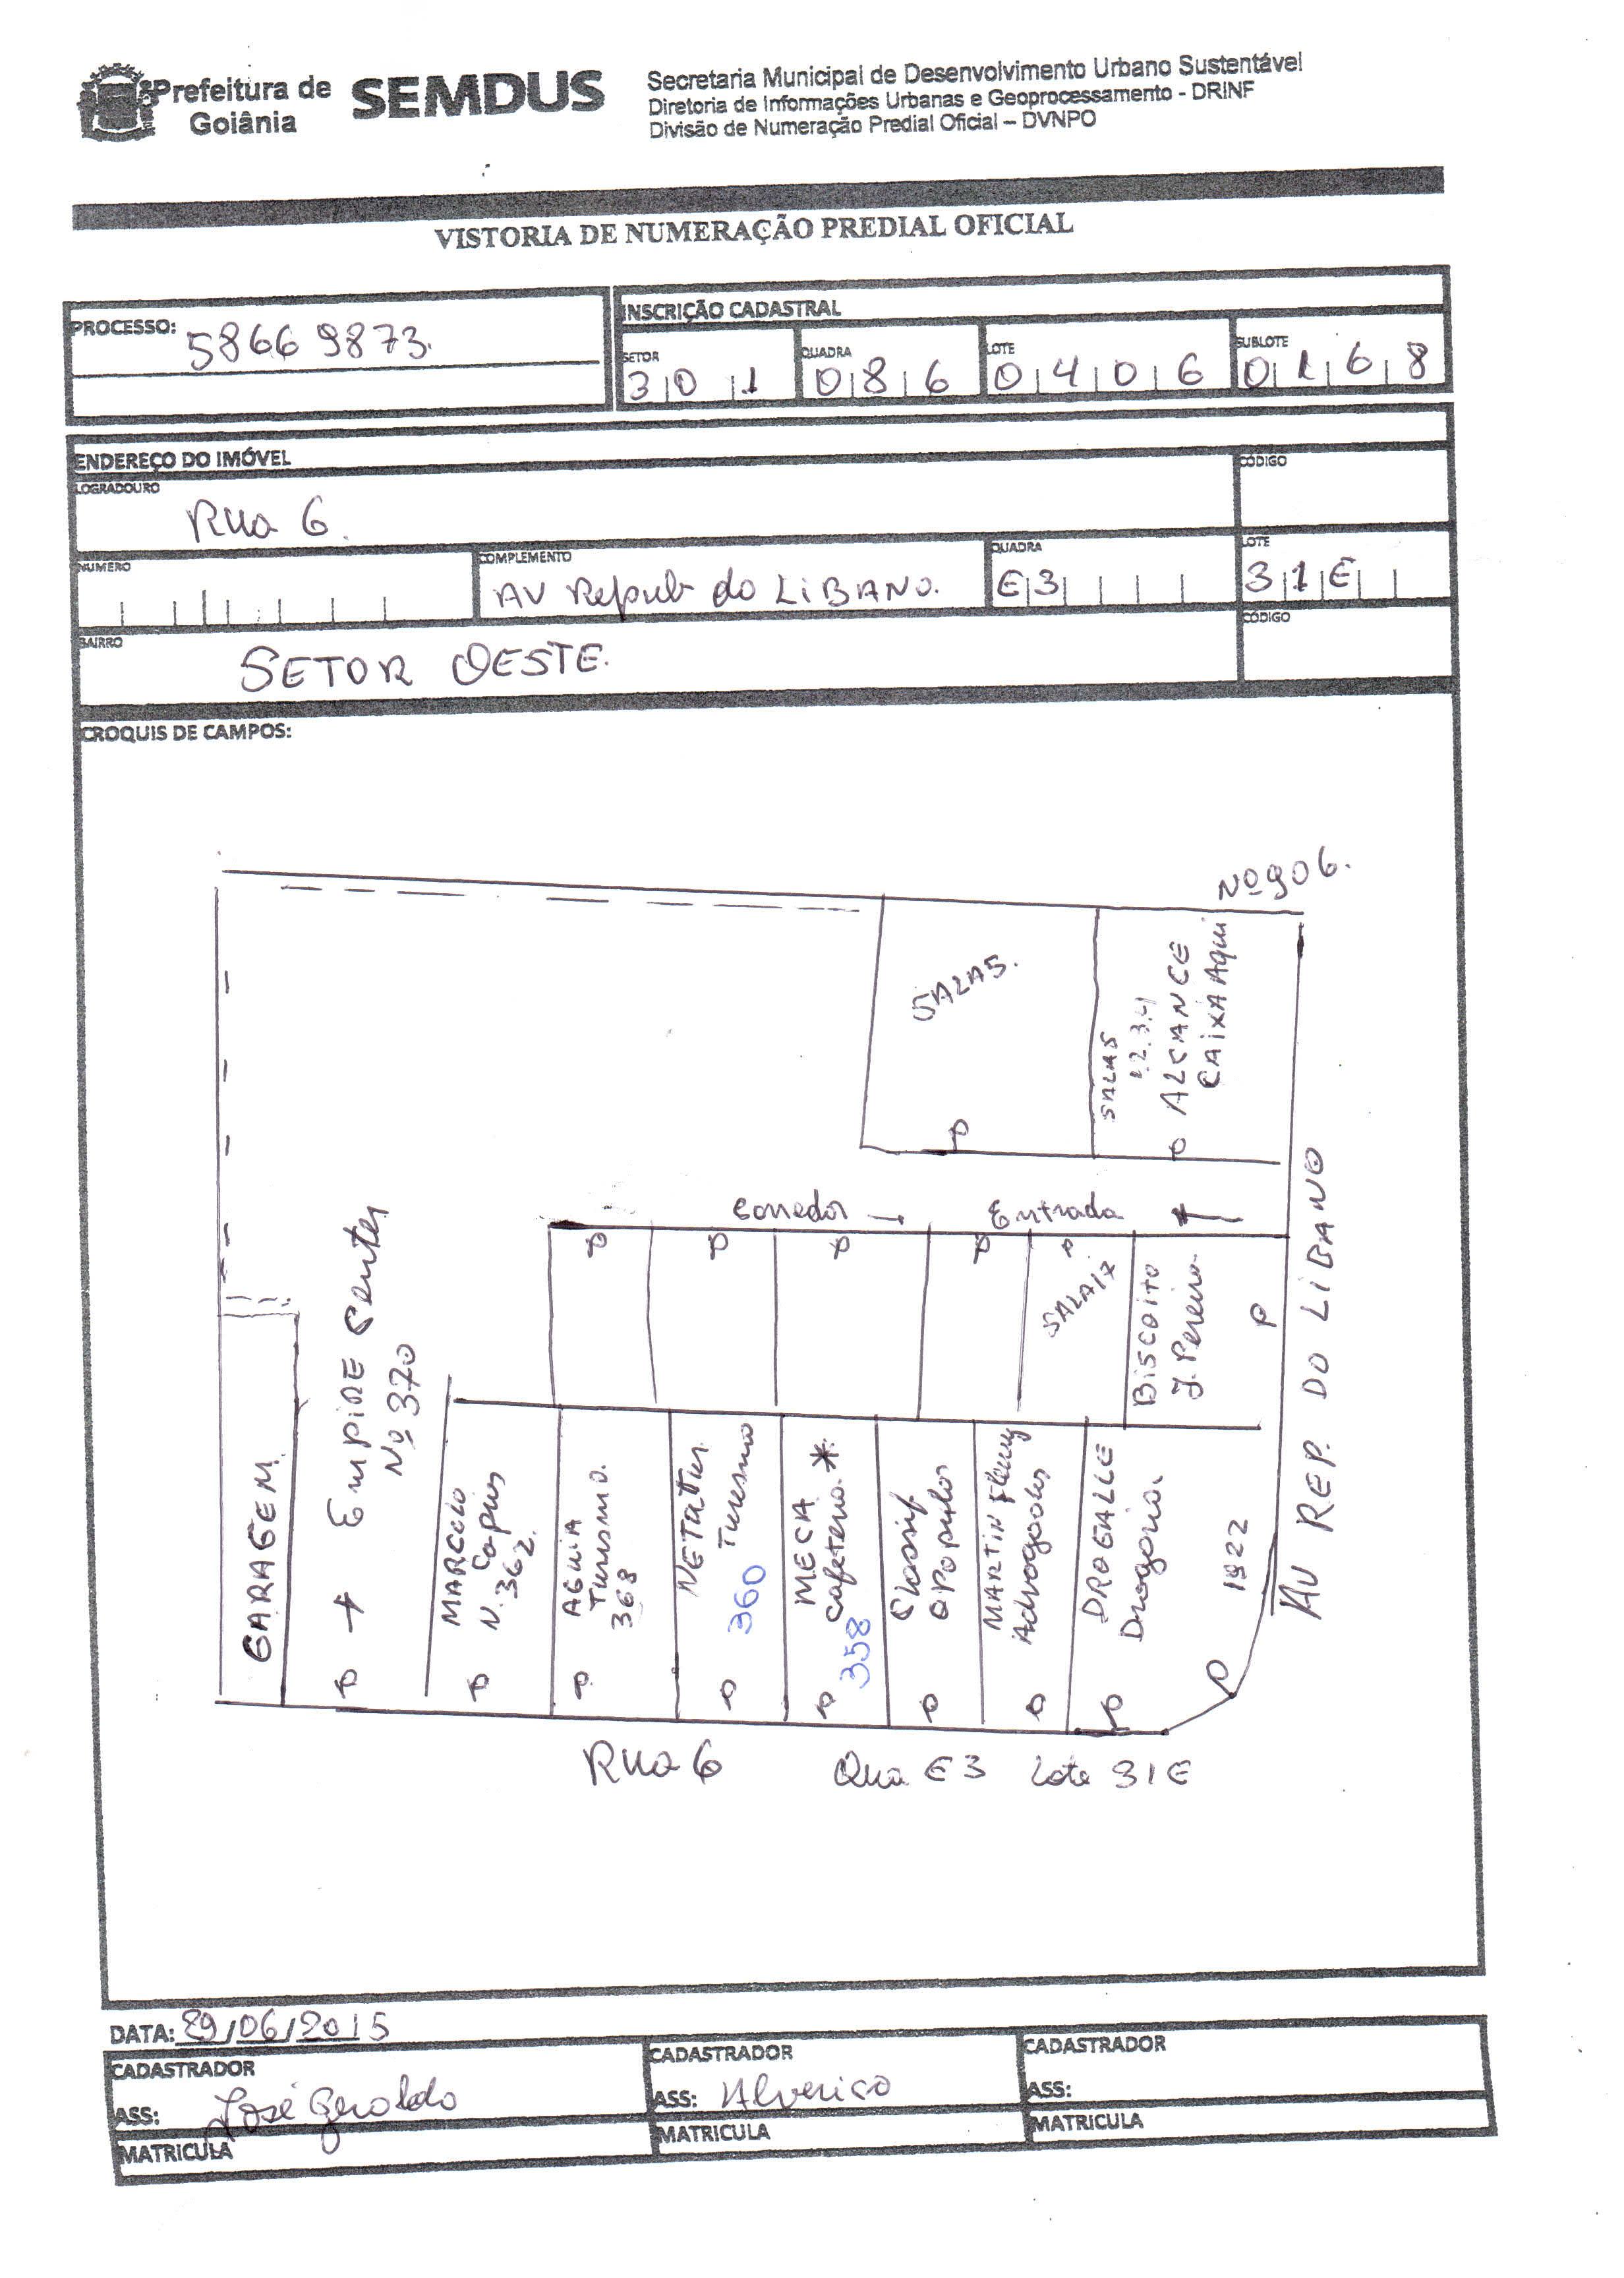 Prefeitura de Goiânia
SEMDUS
Secretaria Municipal de Desenvolvimento Urbano Sustentável
Diretoria de Informações Urbanas e Geoprocessamento - DRINF
Divisão de Numeração Predial Oficial – DVNPO
VISTORIA DE NUMERAÇÃO PREDIAL OFICIAL
PROCESSO: 58669873.
INSCRIÇÃO CADASTRAL
SETOR 301
QUADRA 086
LOTE 0406
SUBLOTE 0168
ENDEREÇO DO IMÓVEL
LOGRADOURO
Rua 6.
CÓDIGO
NUMERO
COMPLEMENTO
AV Repub do LiBANO.
QUADRA
E3
LOTE
31E
BAIRRO
SETOR OESTE.
CÓDIGO
CROQUIS DE CAMPOS:
Nº 906.
SALAS.
SALAS
1.2.3.4
ALCANCE
CAIXA Aqui
Corredor
Entrada
SALA 17
BiSCOITO
J. Pereira
AV REP. DO LIBANO
GARAGEM
EMPIRE Center
Nº 370
MARCELO
N. 362
AGUIA
Turismo.
368
NETATUR
Turismo
360
MECA *
Cafeteria.
358
Classif
O Popular
MARTIN
Advogados
DROGALLE
Drogaria.
1922
Rua 6
Qua E3
Lote 31E
DATA: 29/06/2015
CADASTRADOR
ASS: José Geraldo
MATRICULA
CADASTRADOR
ASS: Alverico
MATRICULA
CADASTRADOR
ASS:
MATRICULA